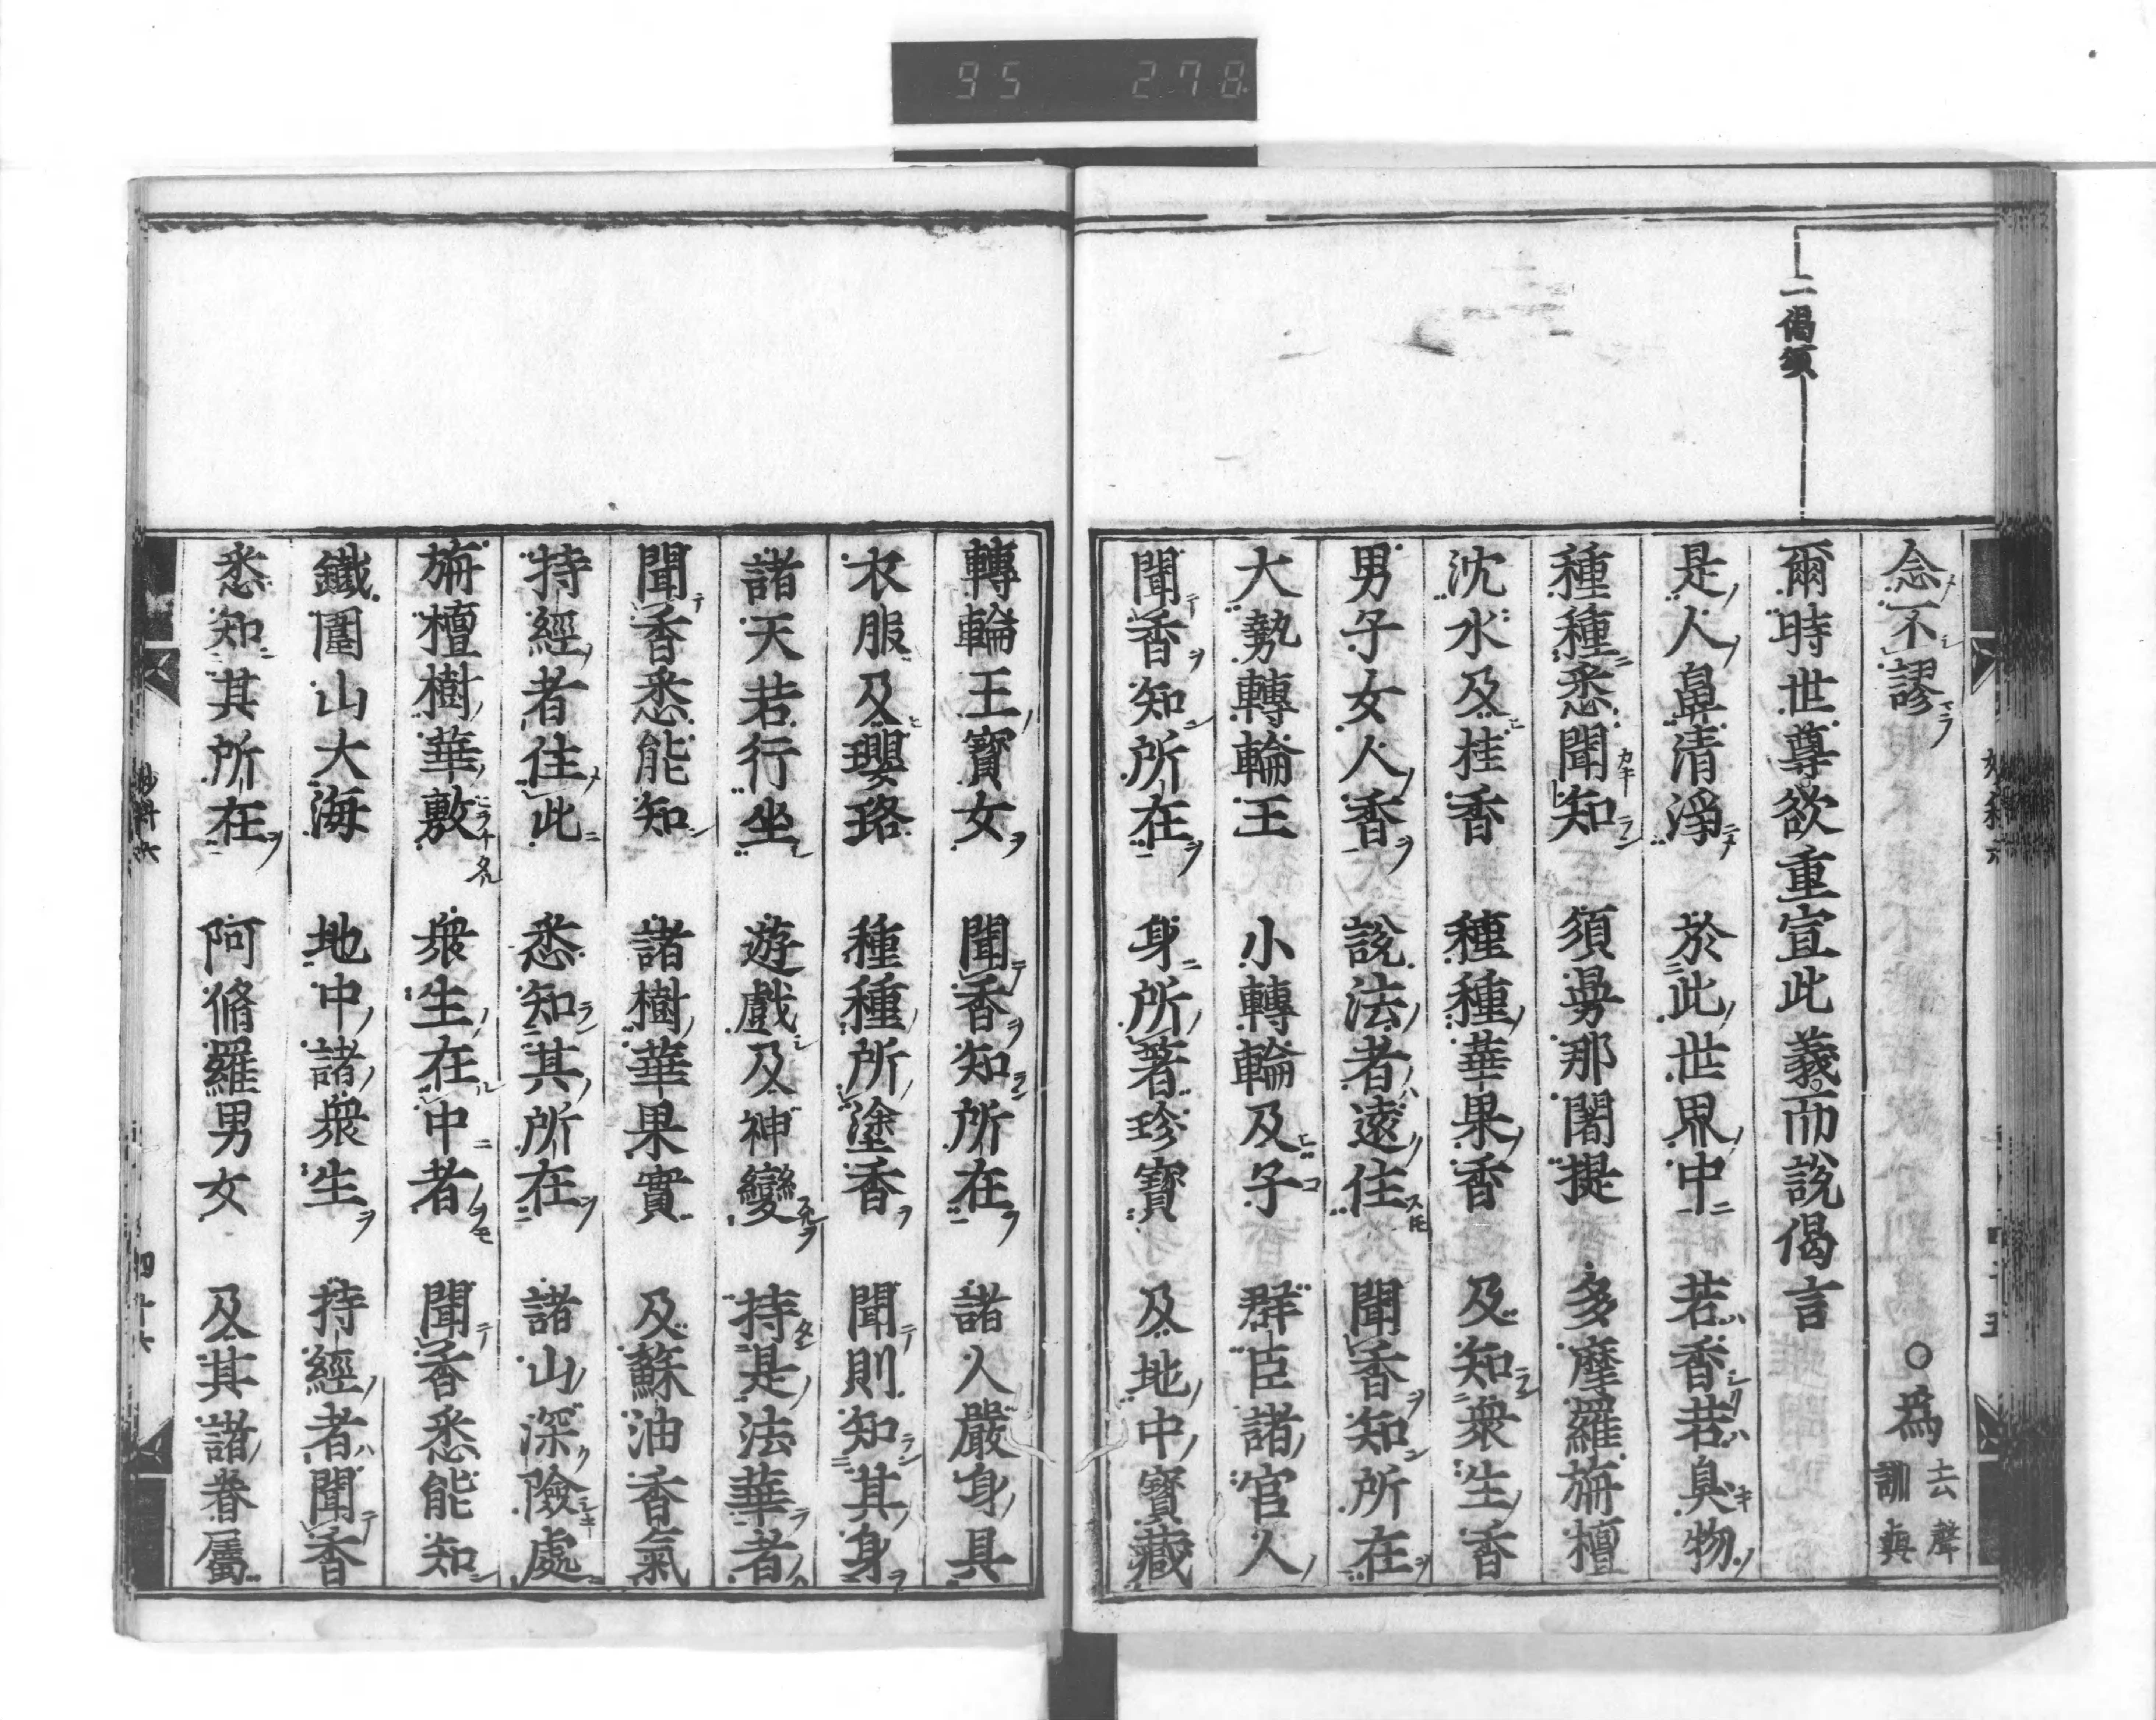 95 278
二偈頌
念不謬 ○爲 去聲 訓與
爾時世尊欲重宣此義而說偈言
是人鼻清淨 於此世界中 若香若臭物
種種悉聞知 須曼那闍提 多摩羅栴檀
沈水及桂香 種種華果香 及知衆生香
男子女人香 說法者遠住 聞香知所在
大勢轉輪王 小轉輪及子 群臣諸官人
聞香知所在 身所著珍寶 及地中寶藏
轉輪王寶女 聞香知所在 諸人嚴身具
衣服及瓔珞 種種所塗香 聞則知其身
諸天若行坐 遊戲及神變 持是法華者
聞香悉能知 諸樹華果實 及蘇油香氣
持經者住此 悉知其所在 諸山深險處
栴檀樹華敷 衆生在中者 聞香悉能知
鐵圍山大海 地中諸衆生 持經者聞香
悉知其所在 阿脩羅男女 及其諸眷屬